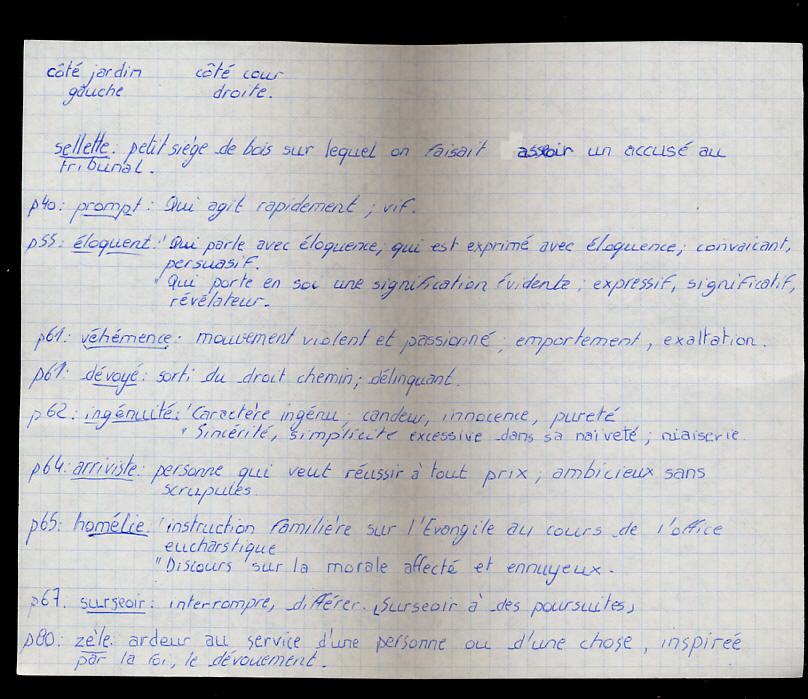 côté jardin côté cour
gauche droite.
sellette: petit siège de bois sur lequel on faisait assoir un accusé au
tribunal.
p40: prompt: Qui agit rapidement; vif.
p55: éloquent: ' Qui parle avec éloquence, qui est exprimé avec éloquence; convaicant,
persuasif.
" Qui porte en soi une signification évidente; expressif, significatif,
révélateur.
p61: véhémence: mouvement violent et passionné; emportement, exaltation.
p61: dévoyé: sorti du droit chemin; délinquant.
p62: ingénuité: ' Caractère ingénu; candeur, innocence, pureté
" Sincérité, simplicité excessive dans sa naiveté; niaiserie.
p64: arriviste: personne qui veut réussir à tout prix; ambicieux sans
scrupules.
p65: homélie ' instruction familière sur l'Evangile au cours de l'office
eucharstique
" Discours sur la morale affecté et ennuyeux.
p67. surseoir: interrompre, différer. "Surseoir à des poursuites"
p80: zèle: ardeur au service d'une personne ou d'une chose, inspireé
par la foi, le dévouement.